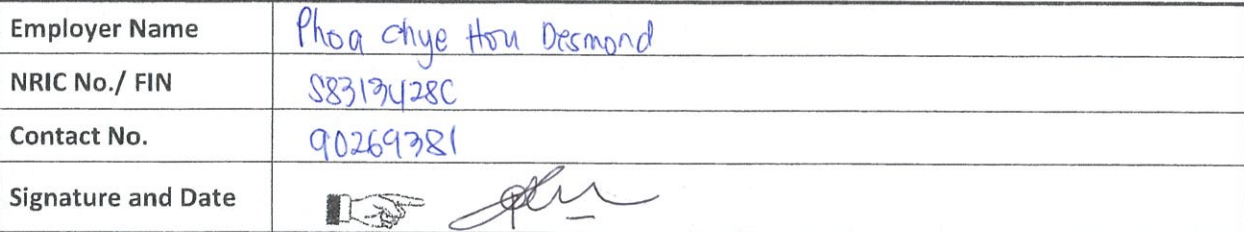 Employer Name Phoa Chye Hou Desmond
NRIC No./ FIN S8313428C
Contact No. 90269381
Signature and Date